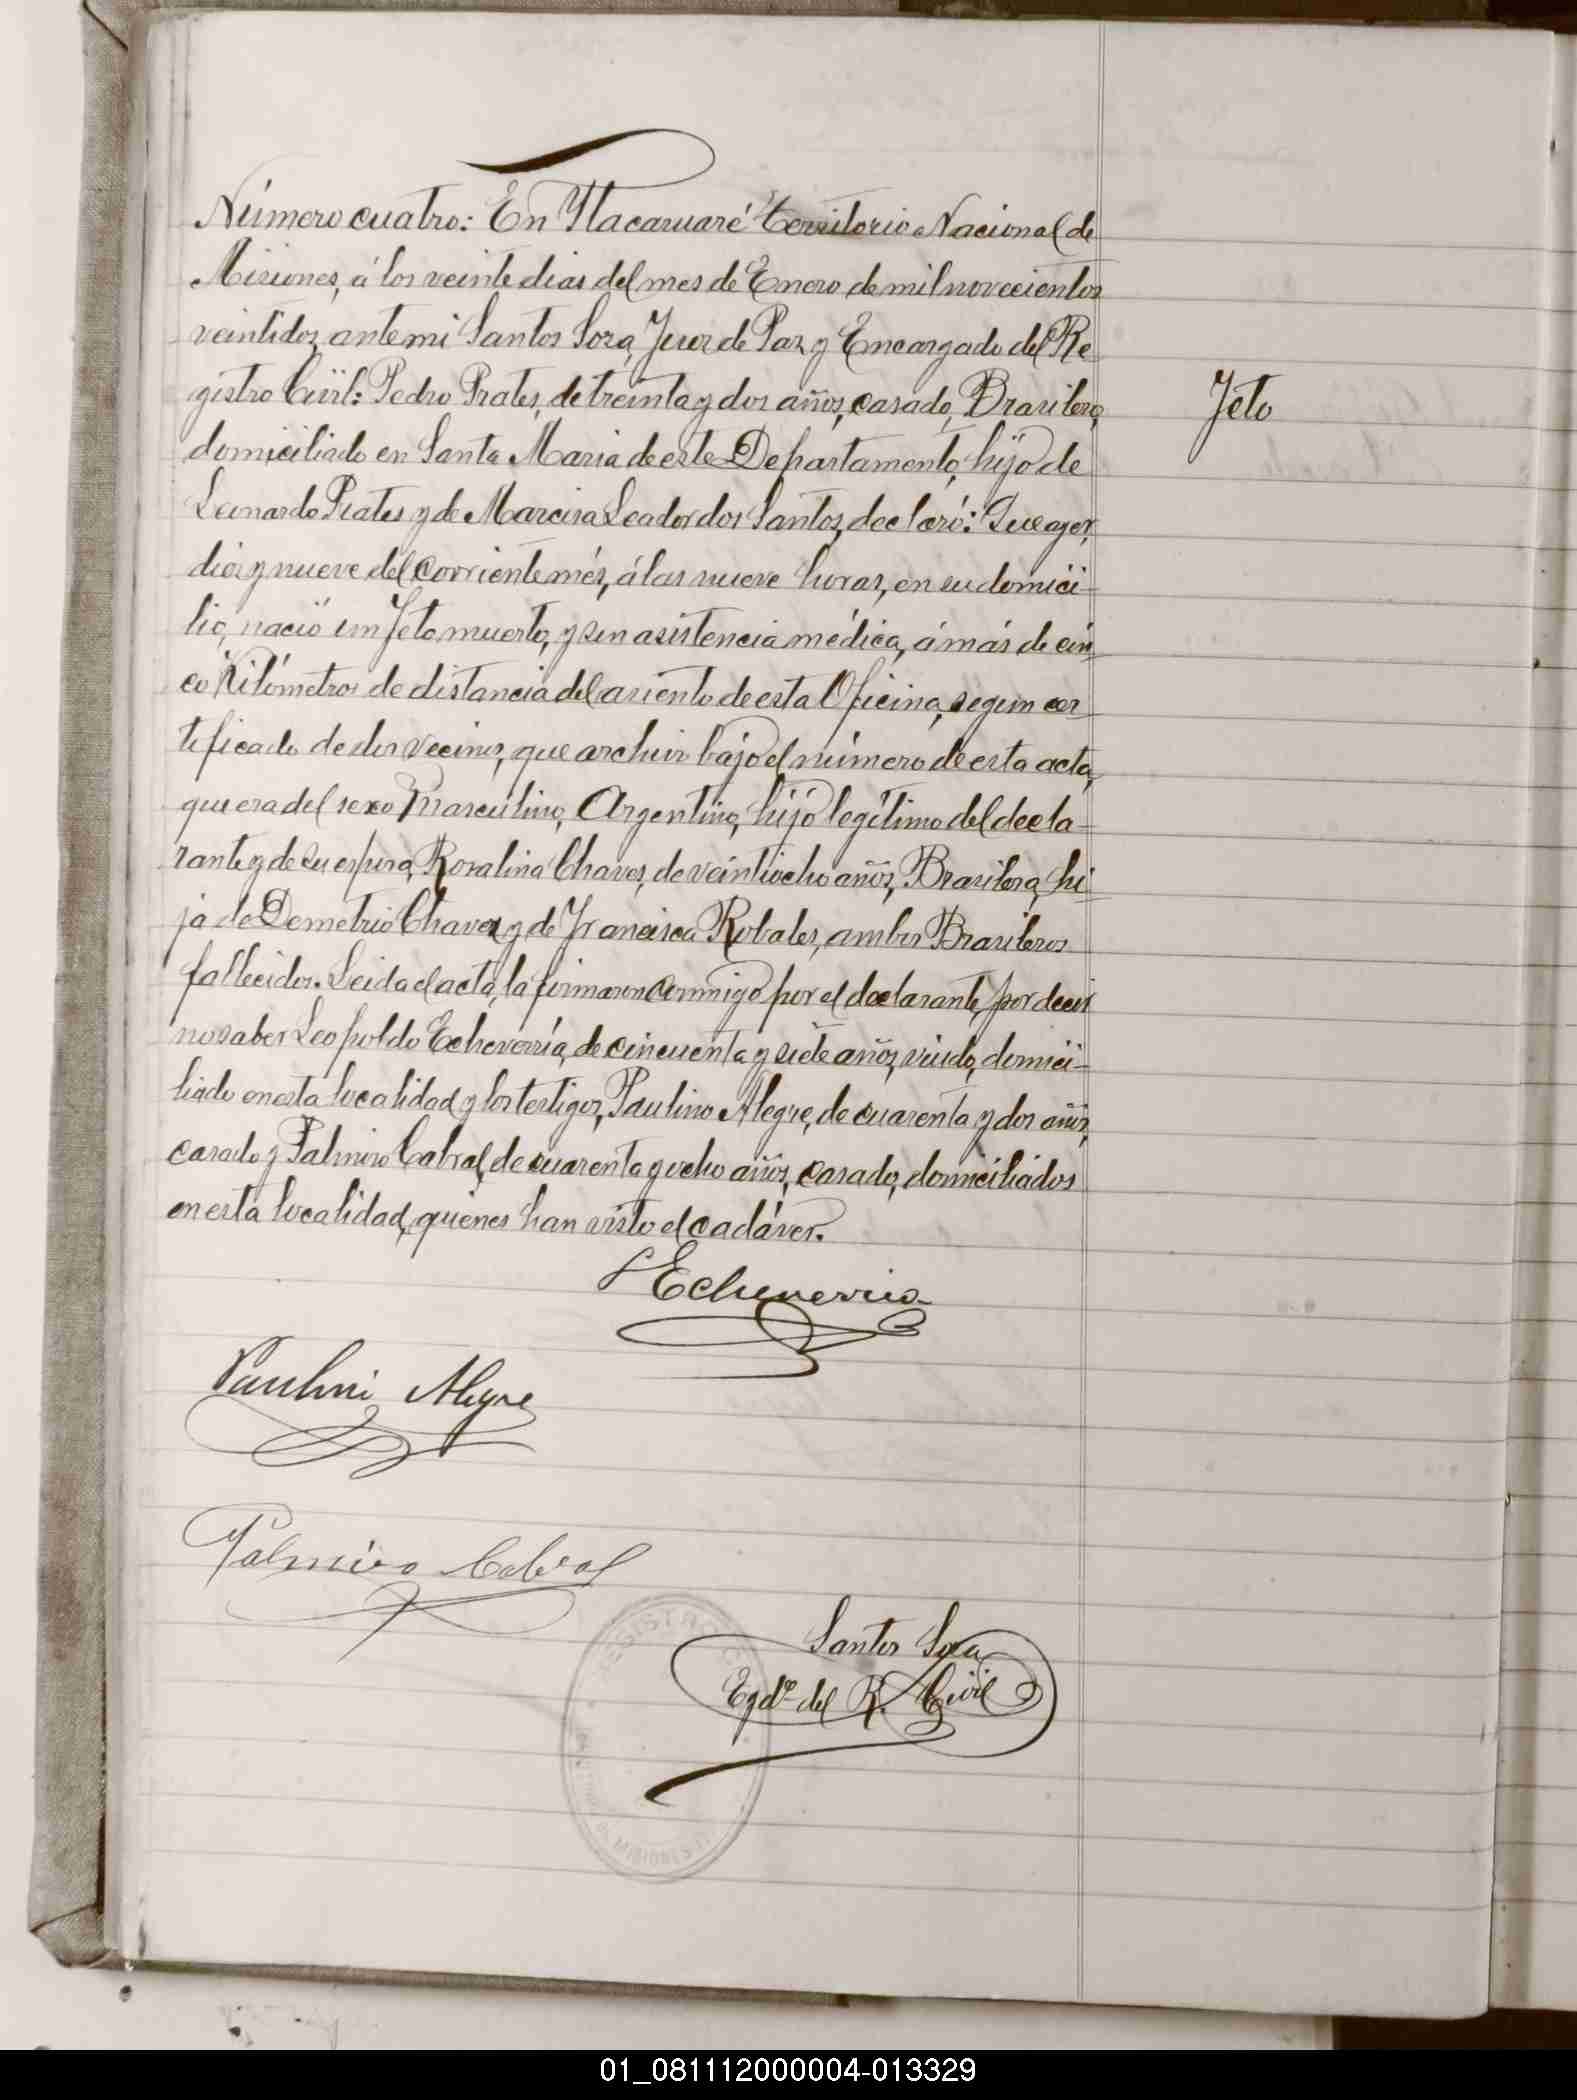 Número cuatro: En Ytacaruaré territorio Nacional de
Misiones, á los veinte dias del mes de Enero de mil novecientos
veintidos, ante mi Santos Sosa, Juez de Paz y Encargado del Re
gistro Civil: Pedro Prates, de treinta y dos años, casado, Brasilero,
domiciliado en Santa Maria de este Departamento, hijo de
Leonardo Prates y de Marcisa Leador dos Santos, declaró: Que ayer,
diez y nueve del corriente més, á las nueve horas, en su domici-
lio, nació un Feto muerto, y sin asistencia médica, á más de cin-
co Kilómetros de distancia del asiento de esta Oficina, segun cer-
tificado de dos vecinos, que archivo bajo el número de esta acta,
que era del sexo Masculino, Argentino, hijo legítimo del decla-
rante y de su esposa, Rosalina Chaves, de veintiocho años, Brasilera, hi-
ja de Demetrio Chaves y de Francisca Robales, ambos Brasileros
fallecidos. Leida el acta, la firmaron conmigo por el declarante, por decir
no saber Leopoldo Echeverría, de cincuenta y siete años, viudo, domici-
liado en esta localidad y los testigos, Paulino Alegre, de cuarenta y dos años,
casado y Palmiro Cabral, de cuarenta y ocho años, casado, domiciliados
en esta localidad, quienes han visto el cadáver.
Feto
L Echeverria
Paulino Alegre
Palmiro Cabral
Santos Sosa
Egdo. del R. Civil
REGISTRO C
MISIONES
01_081112000004-013329